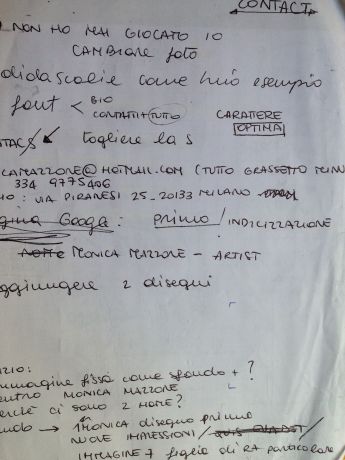 CONTACT
NON HO MAI GIOCATO IO
CAMBIARE foto
didascalie come mio esempio
font < BIO
CONTATTI + TUTTO CARATTERE
OPTIMA
togliere la s
CAMAZZONE@HOTMAIL.COM (TUTTO GRASSETTO
334 9775406
: VIA PIRANESI 25_20133 MILANO
Google: primo/INDICIZZAZIONE
MONICA MAZZONE - ARTIST
aggiungere 2 disegni
ZIO:
immagine fissa come sfondo + ?
entro MONICA MAZZONE
perché ci sono 2 HOME?
→ 1 MONICA disegno primo
NUOVE IMMESSIONI /
IMMAGINE 7 foglio di RA particolare